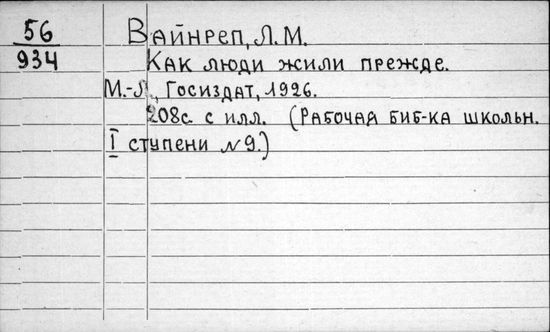 56 Вайнреп, Л. М.
934 Как люди жили прежде.
М.-Л., Госиздат, 1926.
208с. с илл. (Рабочая биб-ка школьн.
I ступени №9.)